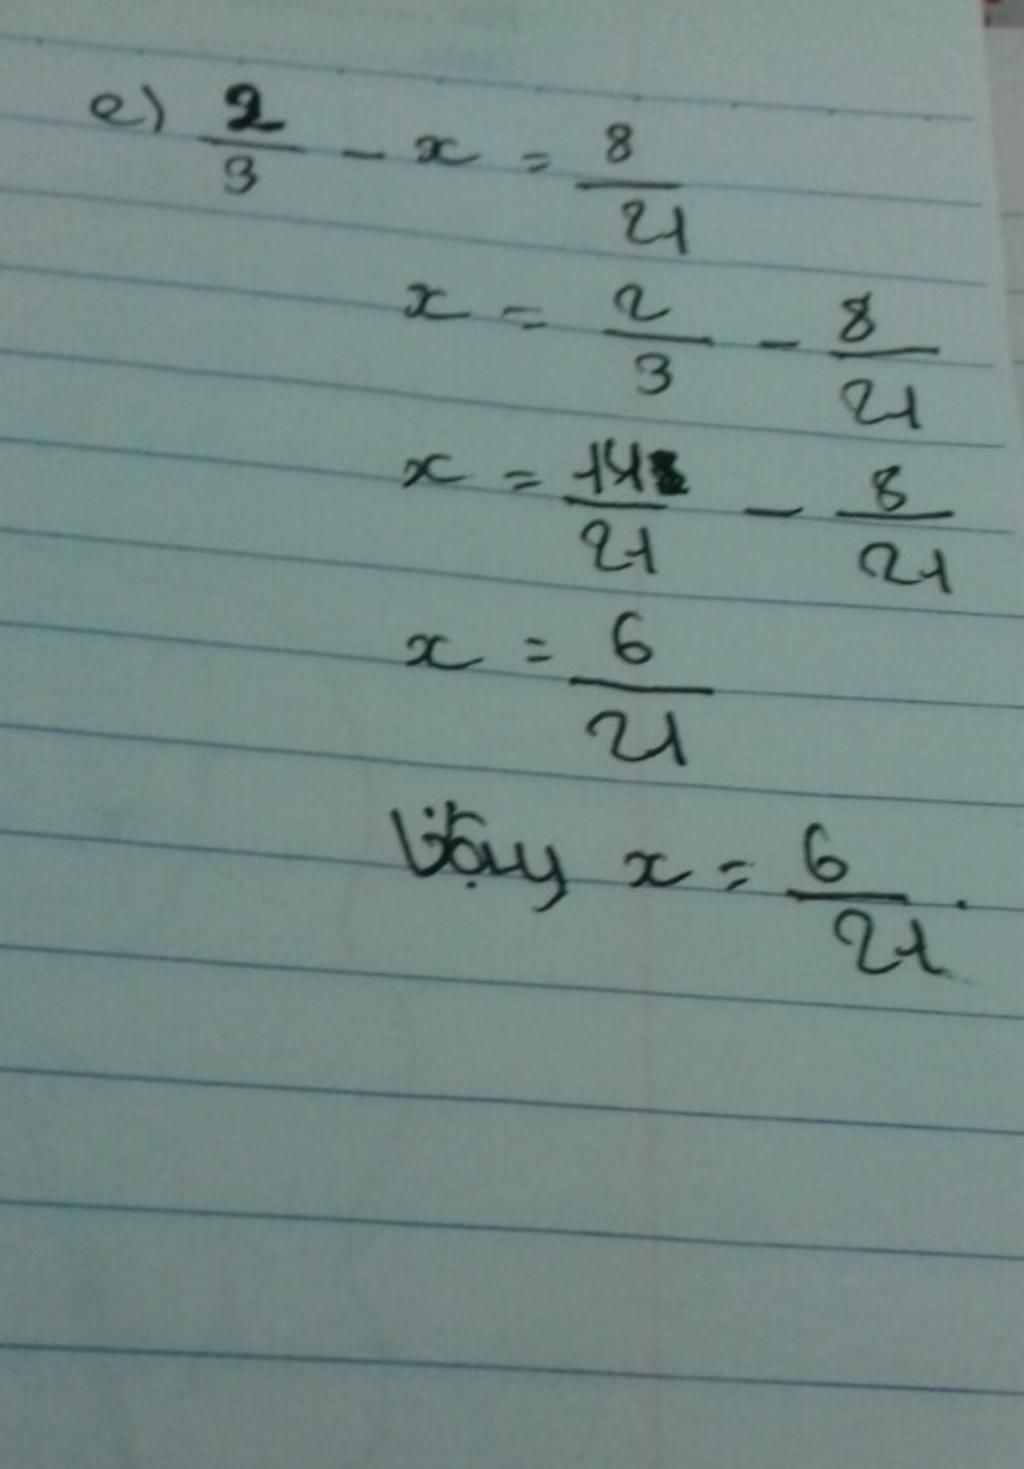 e) 2/3 - x = 8/21
x = 2/3 - 8/21
x = 14/21 - 8/21
x = 6/21
Vậy x = 6/21.